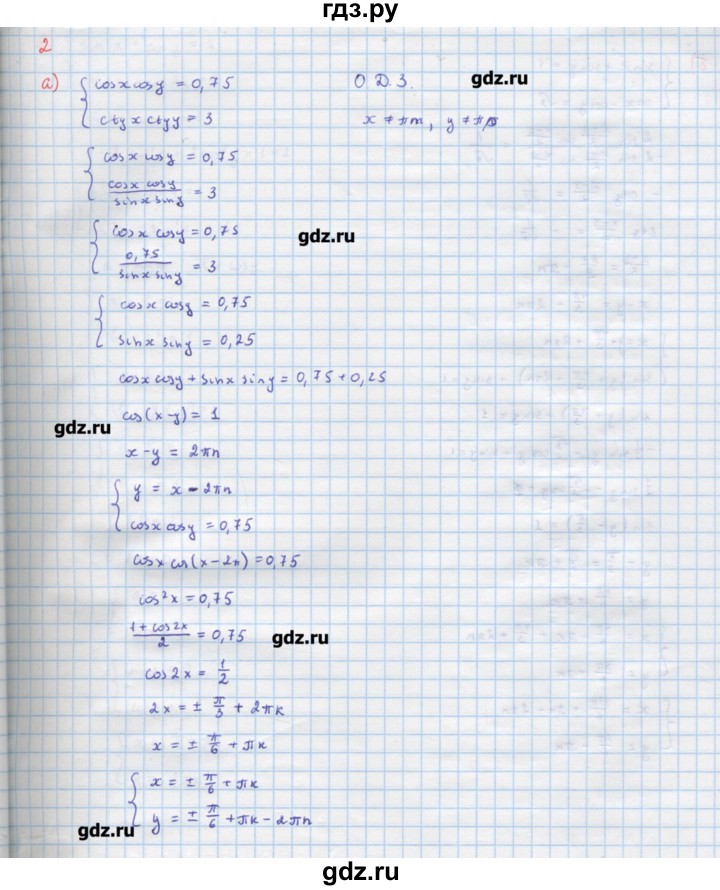 гдз.ру
2
а) { cosx cosy = 0,75
ctgx ctgy = 3
О.Д.З.
x ≠ πm, y ≠ πp
gdz.ru
{ cosx cosy = 0,75
cosx cosy / sinx siny = 3
{ cosx cosy = 0,75
0,75 / sinx siny = 3
gdz.ru
{ cosx cosy = 0,75
sinx siny = 0,25
cosx cosy + sinx siny = 0,75 + 0,25
cos(x-y) = 1
gdz.ru
x-y = 2πn
{ y = x - 2πn
cosx cosy = 0,75
cosx cos(x-2π) = 0,75
cos²x = 0,75
1 + cos2x / 2 = 0,75
gdz.ru
cos2x = 1/2
2x = ± π/3 + 2πk
x = ± π/6 + πk
{ x = ± π/6 + πk
y = ± π/6 + πk - 2πn
gdz.ru
gdz.ru